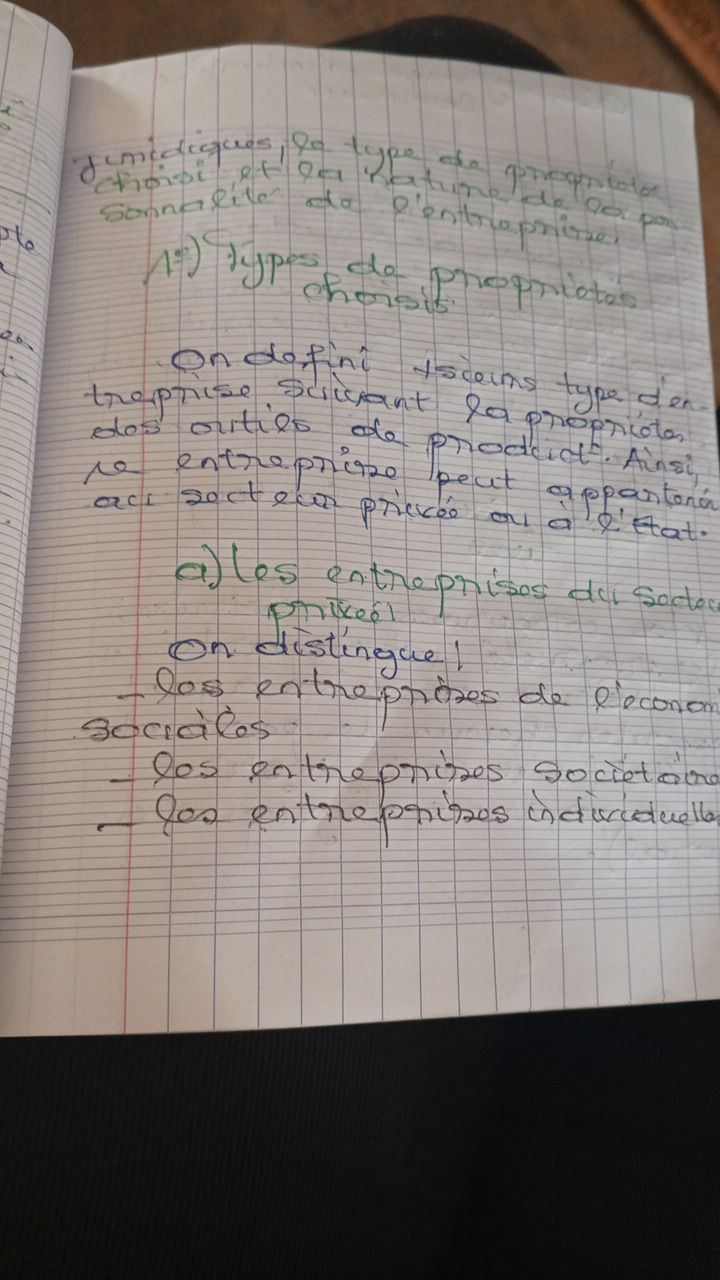 juridiques, le type de propriété
choisi et la nature de la per
sonnalité de l'entreprise.
1º) Types de propriétés
choisis.
On defini +sieurs type d'en-
treprise suivant la propriété
des outils de product°. Ainsi,
une entreprise peut appartenir
au secteur privée ou à l'État.
a) Les entreprises du secteu
privée!
On distingue!
- les entreprises de l'econom
sociàles
- les entreprises sociétaire
- les entreprises individuelle